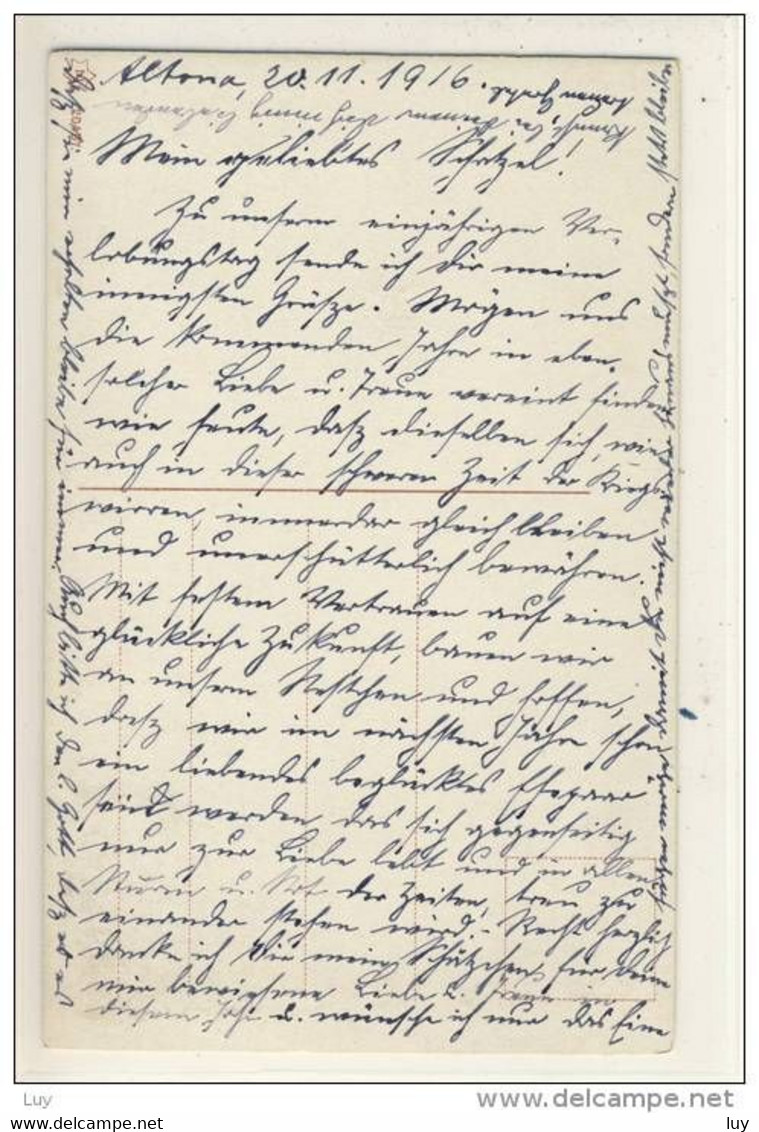 Altona, 20.11.1916.
Mein geliebtes Schatzel!
Zu unserm einjährigen Ver-
lobungstag sende ich Dir meine
innigsten Grüsze. Mögen uns
die kommenden Jahre in eben-
solcher Liebe u. Treue vereint finden
wie heute, dasz dieselben sich, wie
auch in dieser schweren Zeit der Kriegs-
wirren, immerdar gleich bleiben
und unerschütterlich bewähren.
Mit festem Vertrauen auf eine
glückliche Zukunft, bauen wir
an unserm Nestchen und hoffen,
dasz wir im nächsten Jahre schon
ein liebendes beglücktes Ehepaar
sein werden das sich gegenseitig
nur zur Liebe lebt und in allem
Sturm u. Not der Zeiten, treu zu
einander stehen wird. - Recht herzlich
danke ich Dir mein Schätzchen, für Deine
mir bewiesene Liebe u. Treue in
diesem Jahr u. wünsche ich nur das Eine
dasz sie mir erhalten bleibe für immer. Auch bitte ich den l. Gott, dasz er es
Luy
delcampe.net
www.delcampe.net
luy